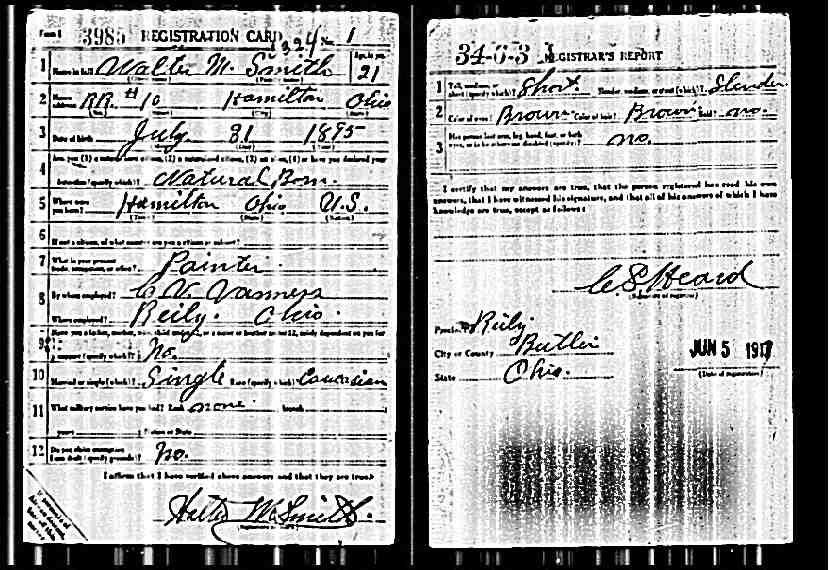 Form 1 3985 REGISTRATION CARD 1324 No. 1
1 Name in full Walter M. Smith Age, in yrs. 21
2 Home address RR. #10 Hamilton Ohio
3 Date of birth July 31 1895
4 Are you (1) a natural-born citizen, (2) a naturalized citizen, (3) an alien, (4) or have you declared your
intention (specify which)? Natural Born.
5 Where were you born? Hamilton Ohio U.S.
6 If not a citizen, of what country are you a citizen or subject?
7 What is your present trade, occupation, or office? Painter
8 By whom employed? C. V.
Where employed? Reily. Ohio.
9 Have you a father, mother, wife, child under 12, or a sister or brother under 12, solely dependent on you for
support (specify which)? No.
10 Married or single (which)? Single Race (specify which)? Caucasian
11 What military service have you had? Rank none branch
years Nation or State
12 Do you claim exemption from draft (specify grounds)? No.
I affirm that I have verified above answers and that they are true.
M. Smith.
34-6-3 REGISTRAR'S REPORT
1 Tall, medium, or short (specify which)? Short Slender, medium, or stout (which)? Slender
2 Color of eyes? Brown Color of hair? Brown Bald? no.
3 Has person lost arm, leg, hand, foot, or both eyes, or is he otherwise disabled (specify)? no.
I certify that my answers are true, that the person registered has read his own
answers, that I have witnessed his signature, and that all of his answers of which I have
knowledge are true, except as follows:
C S Heard
(Signature of registrar)
Precinct Reily
City or County Butler
State Ohio.
JUN 5 1917
(Date of registration)